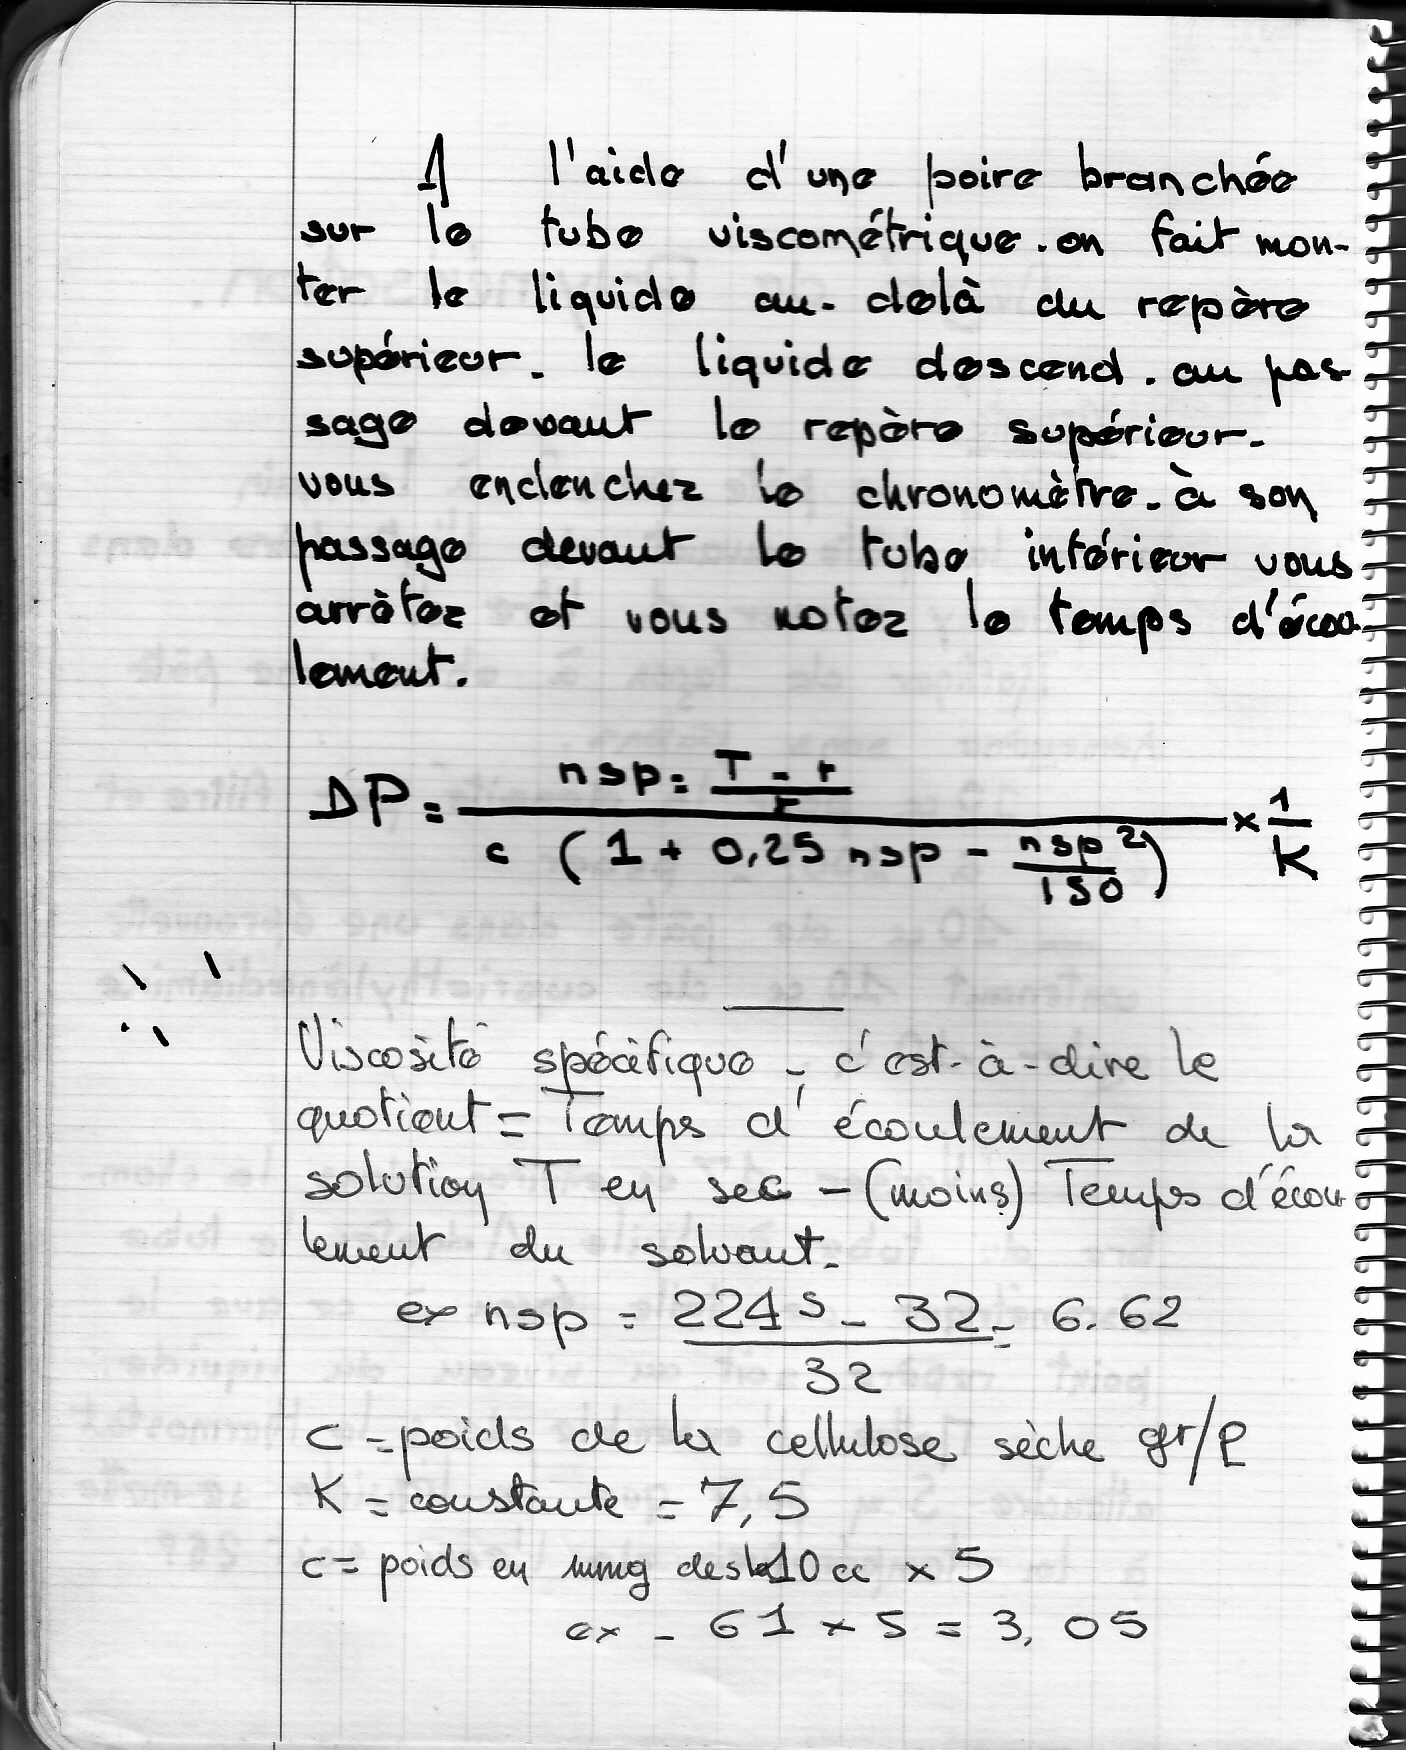 A l'aide d'une poire branchée
sur le tube viscométrique. on fait mon-
ter le liquide au-delà du repère
supérieur. le liquide descend. au pas-
sage devant le repère supérieur.
vous enclenchez le chronomètre. à son
passage devant le tube intérieur vous
arrêtez et vous notez le temps d'écou-
lement.
DP = nsp = T - t / t / c (1 + 0,25 nsp - nsp² / 150) × 1 / K
Viscosité spécifique - c'est-à-dire le
quotient = Temps d'écoulement de la
solution T en sec - (moins) Temps d'écou-
lement du solvant.
ex nsp = 224 s - 32 / 32 = 6.62
c = poids de la cellulose sèche gr/l
K = constante = 7,5
c = poids en mmg des 10 cc × 5
ex - 61 × 5 = 3,05